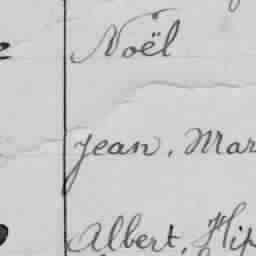 Noël
Jean, Mar
Albert, Hip